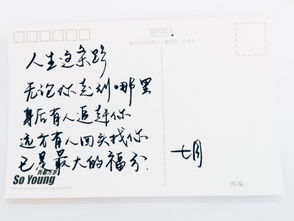 人生这条路
无论你走到哪里
身后有人追赶你
远方有人回头找你
已是最大的福分.
七月
So Young
邮编: